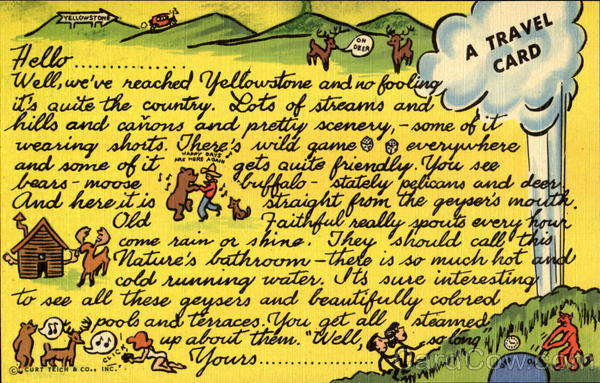 YELLOWSTONE
OH DEER
A TRAVEL CARD
Hello..............
Well, we've reached Yellowstone and no fooling
it's quite the country. Lots of streams and
hills and cañons and pretty scenery, - some of it
wearing shorts. There's wild game everywhere
HAPPY DAYS
ARE HERE AGAIN
and some of it gets quite friendly. You see
bears - moose buffalo - stately pelicans and deer.
And here it is straight from the geyser's mouth.
Old Faithful really spouts every hour
come rain or shine. They should call this
Nature's bathroom - there is so much hot and
cold running water. It's sure interesting
to see all these geysers and beautifully colored
pools and terraces. You get all steamed
up about them. "Well, so long
Yours..................
CLICK
© CURT TEICH & CO., INC.
CardCow.com